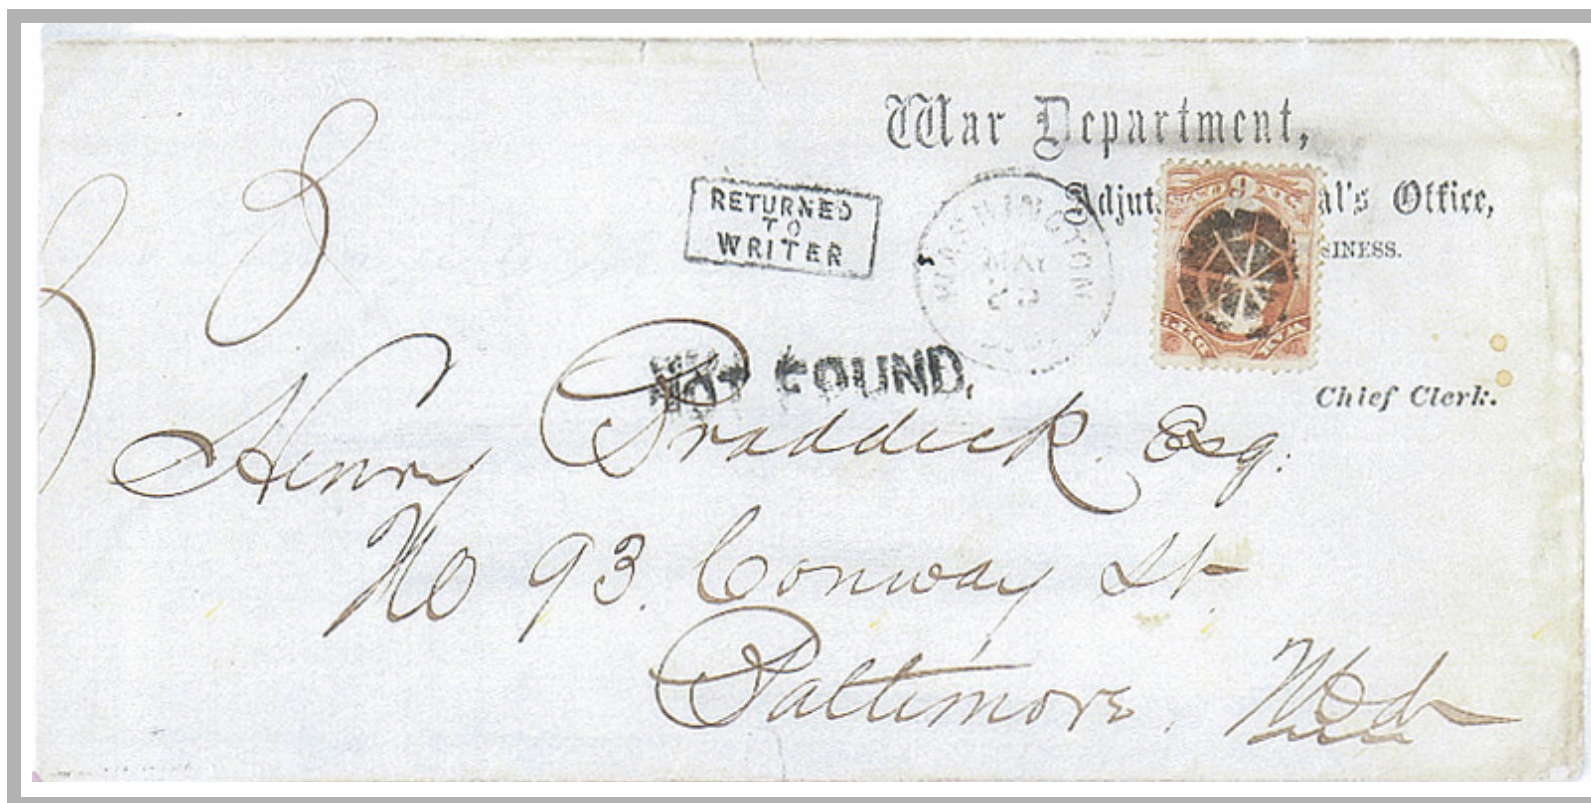 War Department,
Adjut al's Office,
SINESS.
RETURNED
TO
WRITER
WASHINGTON
MAY
NOT FOUND.
Chief Clerk.
Henry Braddick. Esq.
No 93. Conway St.
Baltimore. Md